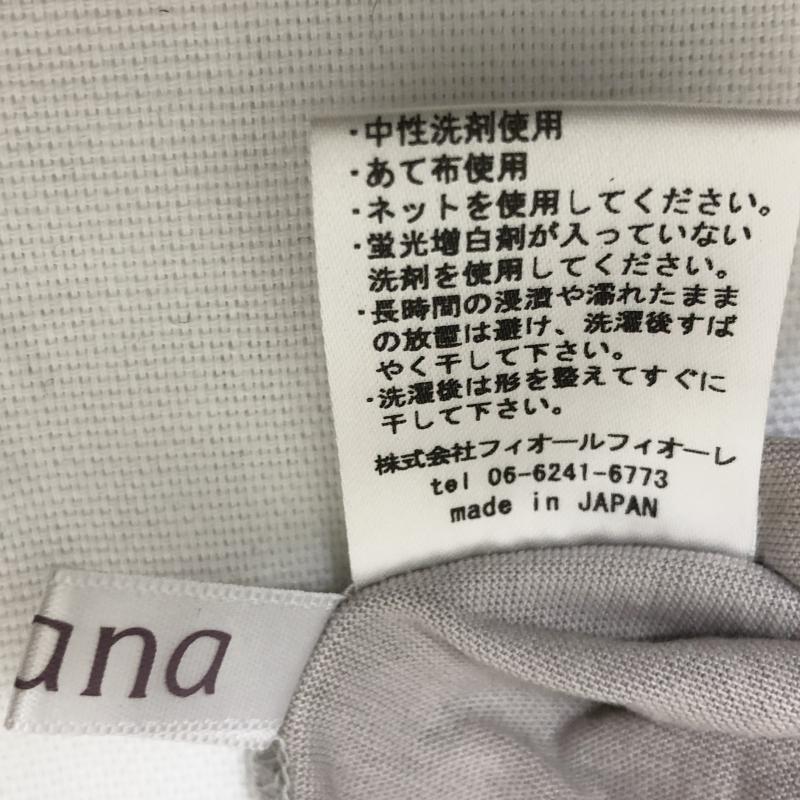 ・中性洗剤使用
・あて布使用
・ネットを使用してください。
・蛍光増白剤が入っていない
洗剤を使用してください。
・長時間の浸漬や濡れたまま
の放置は避け、洗濯後すば
やく干して下さい。
・洗濯後は形を整えてすぐに
干して下さい。
株式会社フィオールフィオーレ
tel 06-6241-6773
made in JAPAN
ana